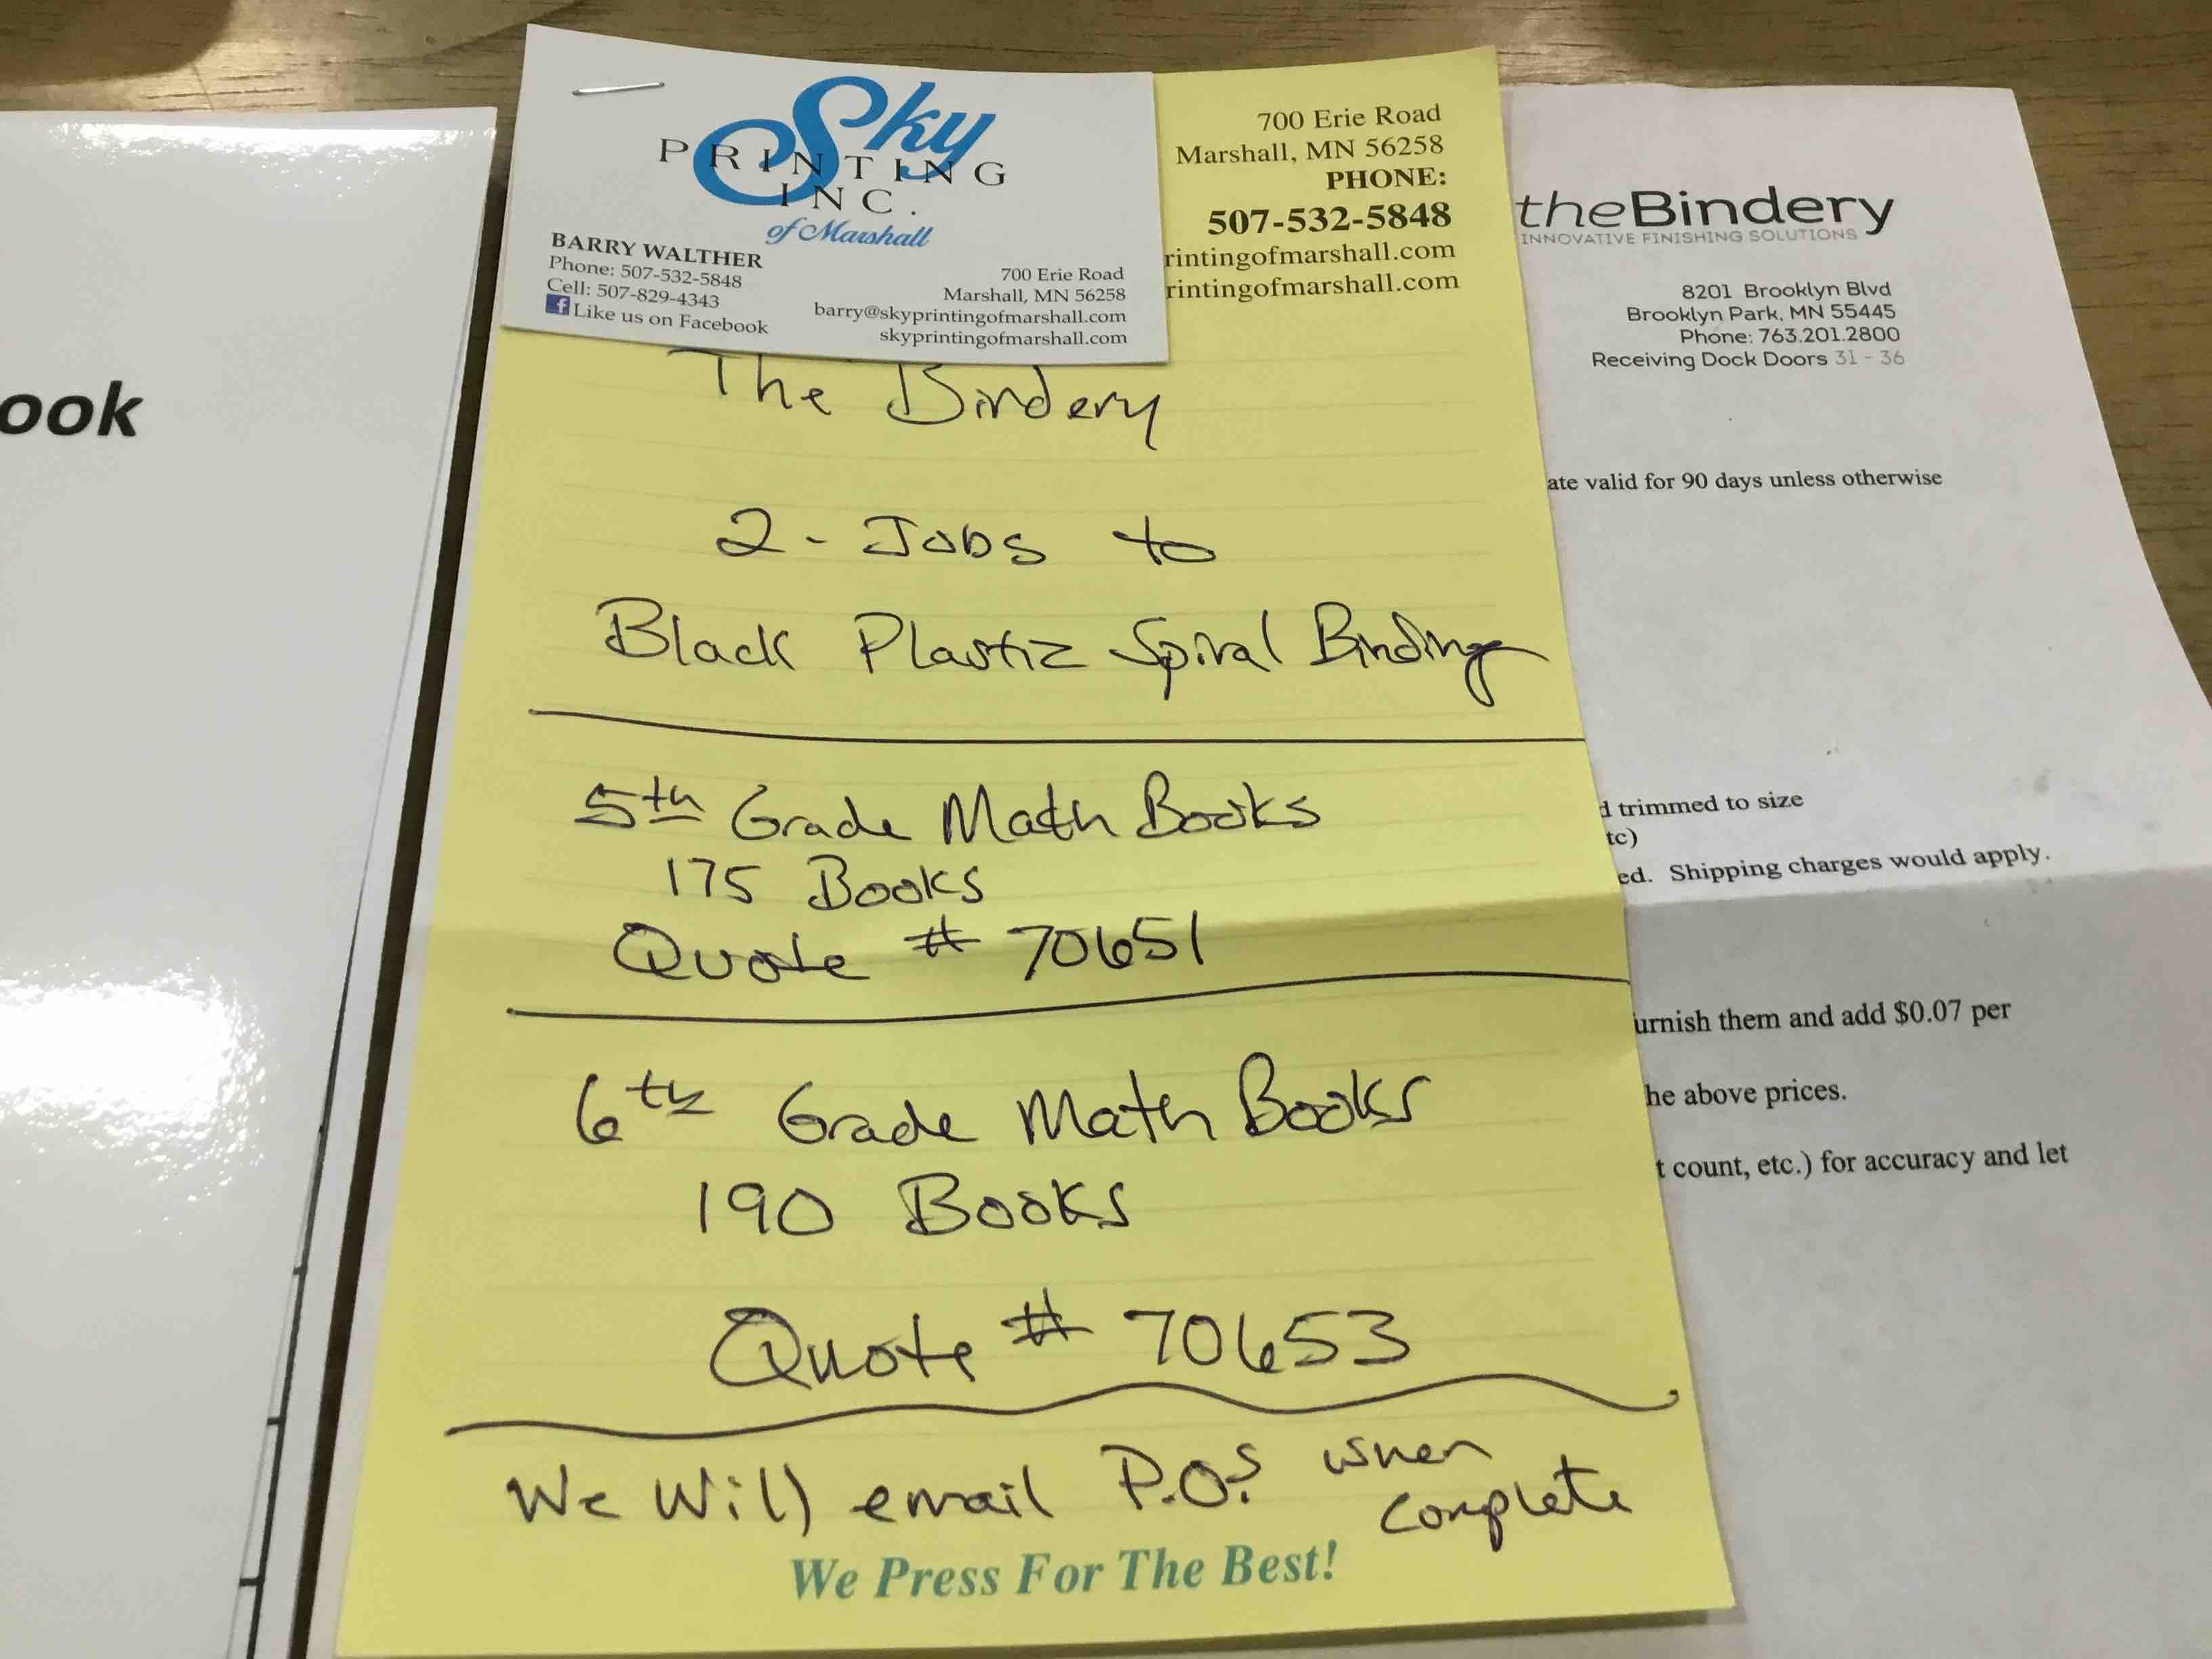 ook
Sky
PRINTING
INC.
of Marshall
BARRY WALTHER
Phone: 507-532-5848
Cell: 507-829-4343
f Like us on Facebook
700 Erie Road
Marshall, MN 56258
barry@skyprintingofmarshall.com
skyprintingofmarshall.com
700 Erie Road
Marshall, MN 56258
PHONE:
507-532-5848
rintingofmarshall.com
rintingofmarshall.com
The Bindery
2- Jobs to
Black Plastic Spiral Binding
5th Grade Math Books
175 Books
Quote # 70651
6th Grade Math Books
190 Books
Quote # 70653
We Will email P.O.s when
complete
We Press For The Best!
theBindery
INNOVATIVE FINISHING SOLUTIONS
8201 Brooklyn Blvd
Brooklyn Park, MN 55445
Phone: 763.201.2800
Receiving Dock Doors 31 - 36
ate valid for 90 days unless otherwise
d trimmed to size
tc)
ed. Shipping charges would apply.
urnish them and add $0.07 per
he above prices.
t count, etc.) for accuracy and let